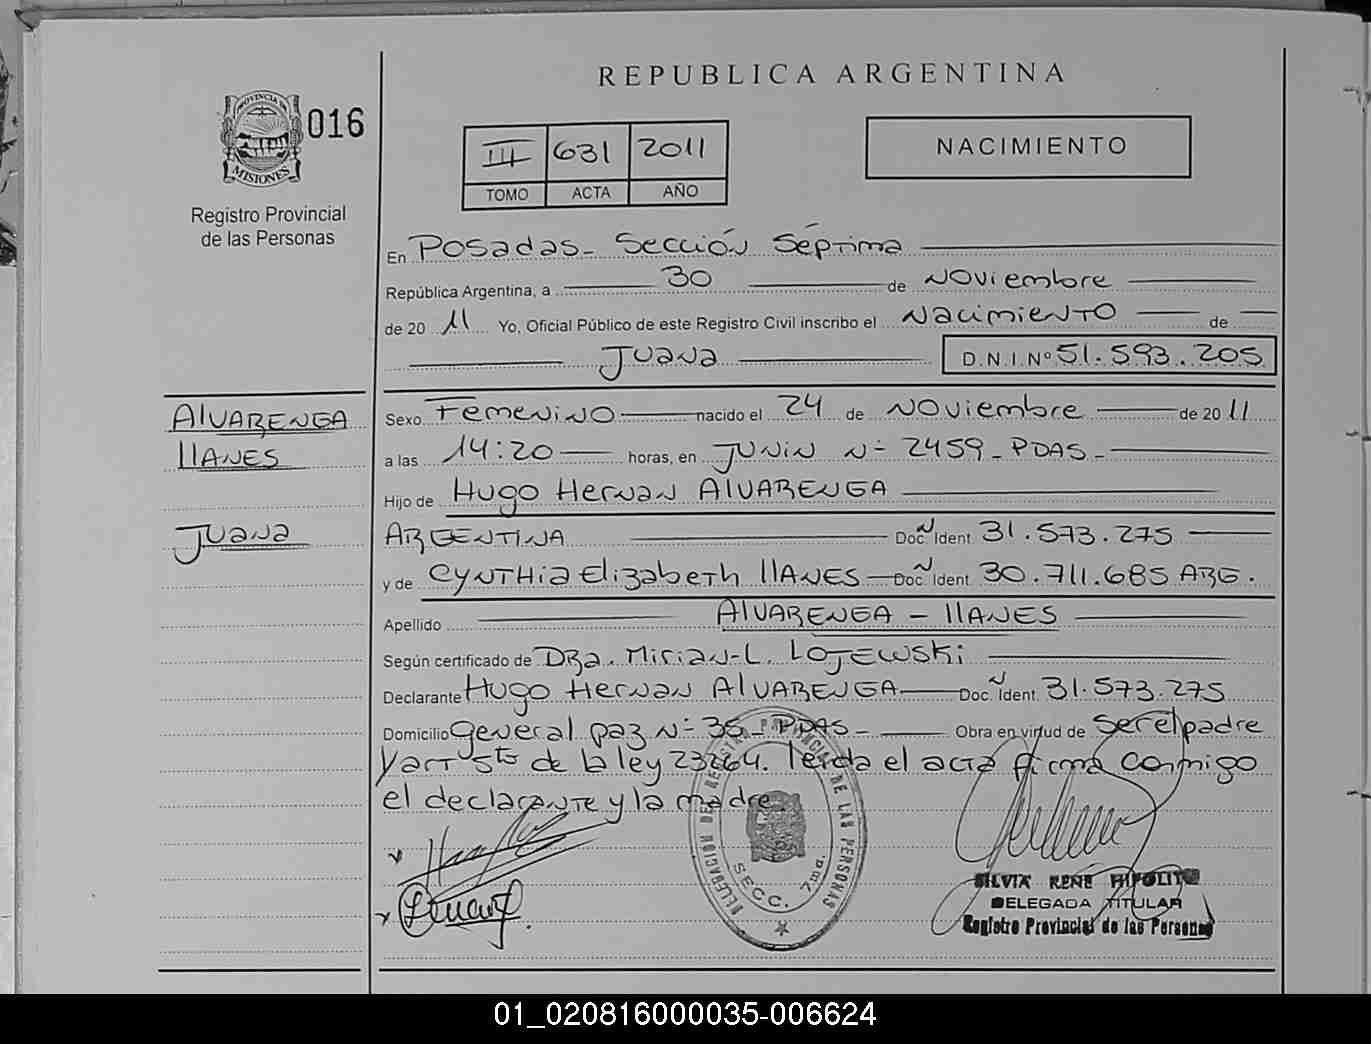 REPUBLICA ARGENTINA
PROVINCIA DE
MISIONES
016
Registro Provincial
de las Personas
III 631 2011
TOMO ACTA AÑO
NACIMIENTO
En Posadas - Sección Séptima
República Argentina, a 30 de Noviembre
de 2011 Yo, Oficial Público de este Registro Civil inscribo el Nacimiento de
Juana D.N.I. Nº 51.593.205
ALVARENGA
LLANES
Juana
Sexo Femenino nacido el 24 de Noviembre de 2011
a las 14:20 horas, en JUNIN Nº 2459 - PDAS -
Hijo de Hugo Hernan ALVARENGA
ARGENTINA Doc. Ident. 31.573.275
y de CYNTHia Elizabeth LLANES Doc. Ident. 30.711.685 ARG.
Apellido ALVARENGA - LLANES
Según certificado de Dra. Mirian L. LOJEWSKi
Declarante Hugo Hernan ALVARENGA Doc. Ident. 31.573.275
Domicilio General paz Nº 35 - PDAS - Obra en virtud de ser el padre
y art 5to de la ley 23264. leida el acta firma conmigo
el declarante y la madre.
DELEGACION DEL REGISTRO PROVINCIAL DE LAS PERSONAS
SECC. 7ma.
SILVIA RENE HIPOLITO
DELEGADA TITULAR
Registro Provincial de las Personas
01_020816000035-006624